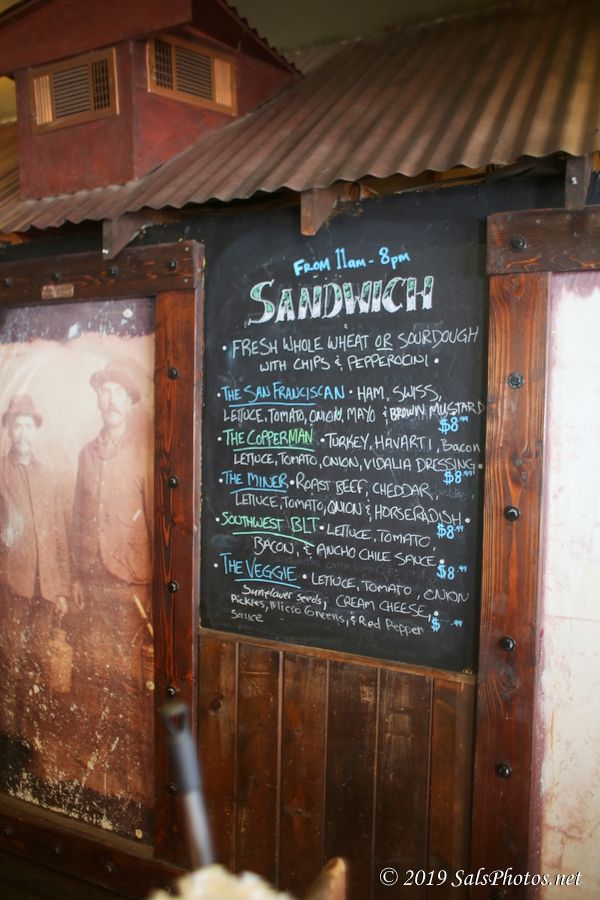 FROM 11AM - 8PM
SANDWICH
• FRESH WHOLE WHEAT OR SOURDOUGH
WITH CHIPS & PEPPEROCINI •
• THE SAN FRANCISCAN • HAM, SWISS,
LETTUCE, TOMATO, ONION, MAYO & BROWN MUSTARD
$8.99
• THE COPPERMAN • TURKEY, HAVARTI, BACON
LETTUCE, TOMATO, ONION, VIDALIA DRESSING •
$8.99
• THE MINER • ROAST BEEF, CHEDDAR,
LETTUCE, TOMATO, ONION & HORSERADISH •
$8.99
• SOUTHWEST BLT • LETTUCE, TOMATO,
BACON, & ANCHO CHILE SAUCE •
$8.99
• THE VEGGIE • LETTUCE, TOMATO, ONION
Sunflower Seeds, CREAM CHEESE,
Pickles, Micro Greens, & Red Pepper
Sauce $ .99
© 2019 SalsPhotos.net